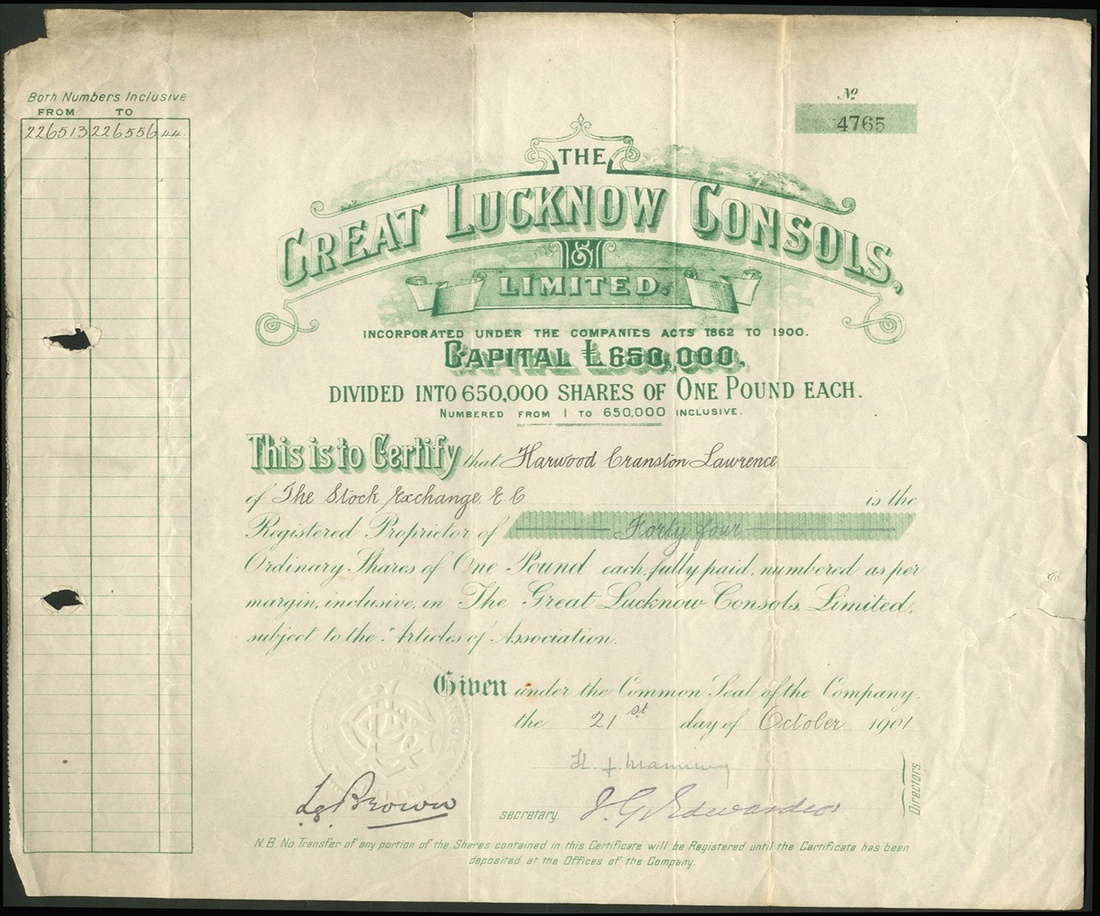 Both Numbers Inclusive
FROM TO
226513 226556 44
No
4765
THE
GREAT LUCKNOW CONSOLS,
LIMITED.
INCORPORATED UNDER THE COMPANIES ACTS 1862 TO 1900.
CAPITAL £650,000,
DIVIDED INTO 650,000 SHARES OF ONE POUND EACH.
NUMBERED FROM 1 TO 650,000 INCLUSIVE.
This is to Certify that Harwood Cranston Lawrence
of The Stock Exchange E.C is the
Registered Proprietor of Forty four
Ordinary Shares of One Pound each, fully paid, numbered as per
margin, inclusive, in The Great Lucknow Consols, Limited,
subject to the Articles of Association.
Given under the Common Seal of the Company,
the 21st day of October 1901
Directors.
Brown
secretary.
N.B. No Transfer of any portion of the Shares contained in this Certificate will be Registered until the Certificate has been
deposited at the Offices of the Company.